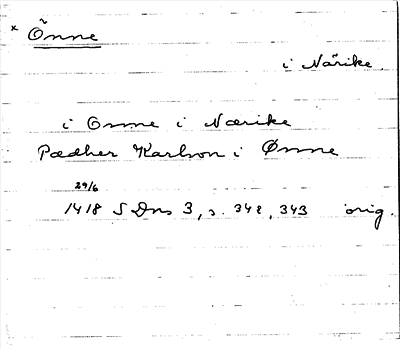 * Õnne
i Närike.
i Onne i Nærike
Pædher Karlson i Ønne
29/6
1418 SDns 3, s. 342, 343 orig.